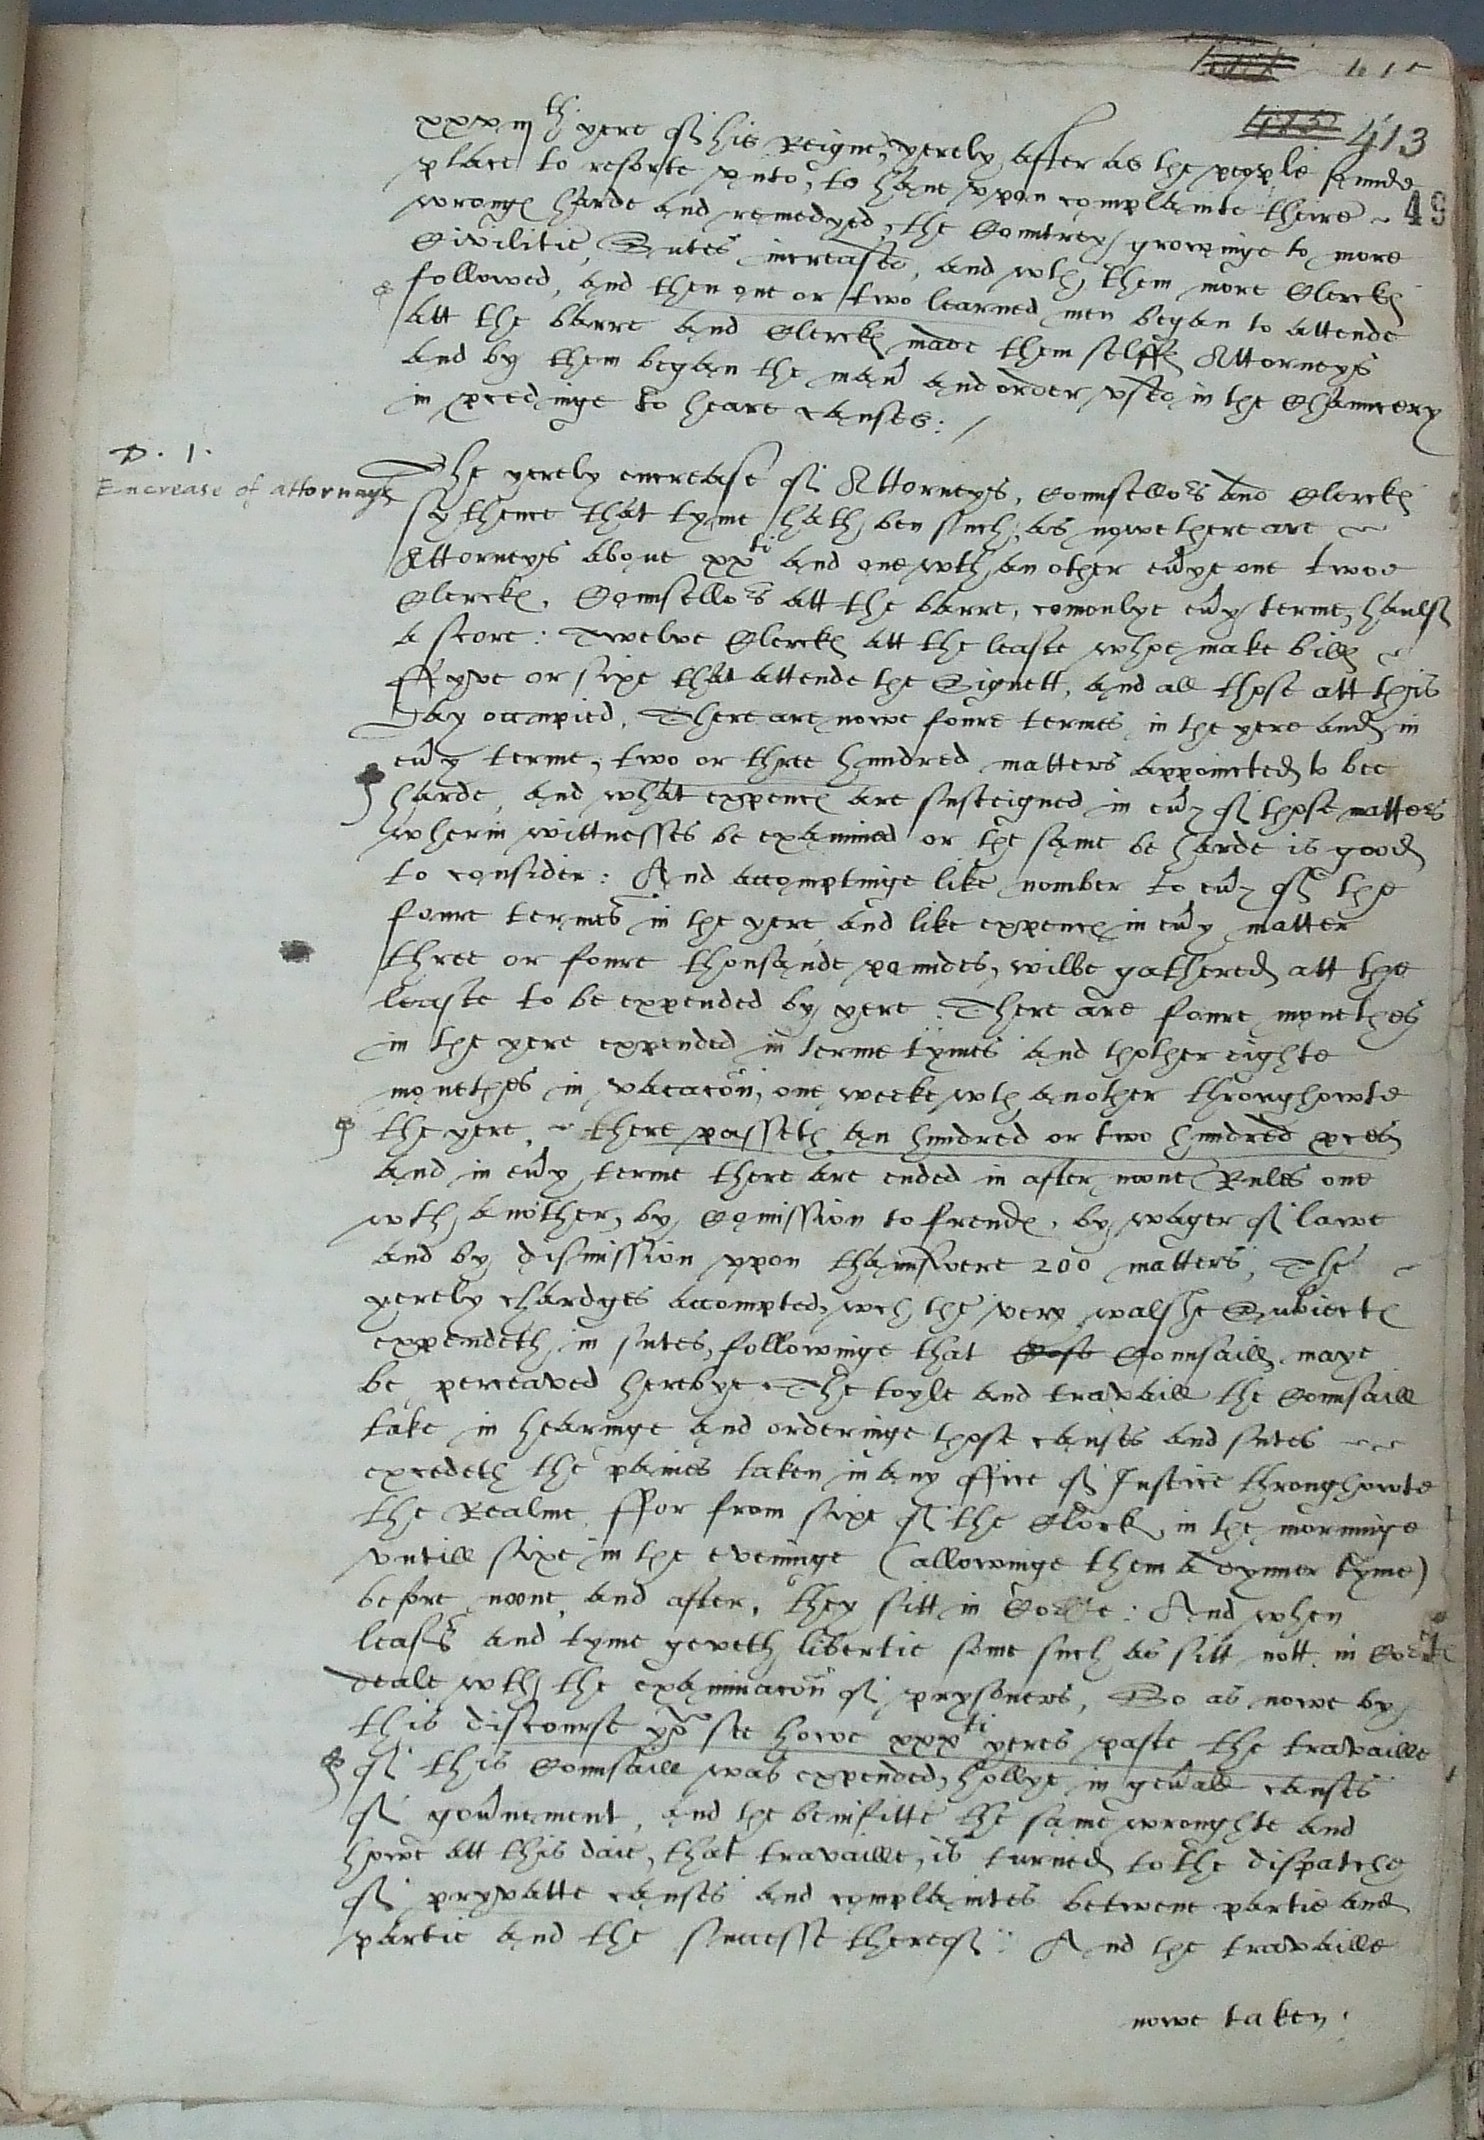 413
49
xxxiijth yere of his Reigne, yerely after as the people founde
place to resorte vnto, to haue vpon complainte there
wronges harde and remedyed, the Countrey growinge to more
Civilitie, Sutes increased, and wth them more Clerckes
followed, and then one or two learned men began to attende
att the barre and Clerckes made them selffes Attorneys
and by them began the manr and order vsed in the Chauncery
in procedinge to heare causes: /
D. 1.
Encrease of attorneys
The yerely encrease of Attorneys, Counsellors and Clerckes
sythence that tyme hath ben such, as nowe there are
Attorneys aboue xxti and one wth an other eurye one twoe
Clerckes, Counsellors att the barre, comonlye eury terme, haulf
a score: Twelve Clerckes att the leaste whoe make billes
ffyve or sixe that attende the Signett, and all those att this
day occupied. There are nowe foure termes in the yere and in
eury terme, two or three hundred matters appointed to bee
harde, and what expences are susteigned in eury of those matters
wherin wittnesses be examined or the same be harde is good
to consider: And accomptinge like nomber to eury of the
foure termes in the yere and like expences in eury matter
three or foure thousande poundes, wilbe gathered att the
leaste to be expended by yere. There are foure monethes
in the yere expended in terme tymes and thother eighte
monethes in vacacon, one weeke wth another throughowte
the yere, there passeth an hundred or two hundred proces
and in eury terme there are ended in after none Rules one
wth another, by Comission to frendes, by wager of lawe
and by dismission vpon thaunswere 200 matters, The
yerely chardges accompted, wch the very walshe Subiectes
expendeth in sutes, followinge that Counsaill maye
be perceaved herebye. The toyle and travaill the Counsaill
take in hearinge and orderinge those causes and sutes
excedeth the paines taken in any office of Justice throughowte
the Realme. ffor from sixe of the Clock in the morninge
vntill sixe in the eveninge (allowinge them a dynner tyme)
before none and after, they sitt in Courte: And when
leasr and tyme geveth libertie some such as sitt nott in Courte
deale wth the examinacon of prysoners, So as nowe by
this discourse yor see howe xxxti yeres paste the travaille
of this Counsaill was expended, hollye in geurall causes
of gourment, and the benifitte the same wroughte and
howe att this daie, that travaille, is turned to the dispatche
of pryvatte causes and complaintes betwene partie and
partie and the successe thereof: And the travaille
nowe taken